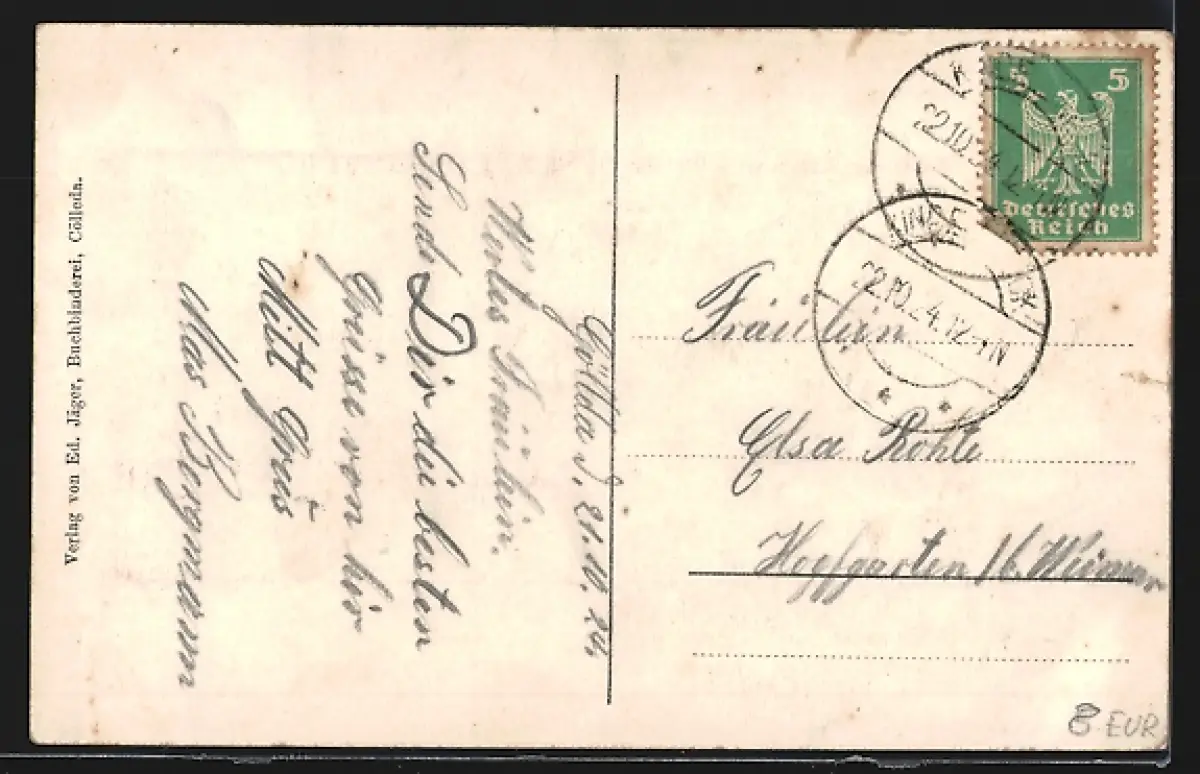 Verlag von Ed. Jäger, Buchbinderei, Cölleda.
Gölleda d. 21.10.24.
Wertes Fräulein.
Sende Dir die besten
Grüsse von hir
Mitt Grus
Max Bergmann
5 5
Deutsches
Reich
22.10.24.12-1N
22.10.24.12-1N
Fräulein
Elsa Rohte
Hopfgarten /b. Weimar
8 EUR